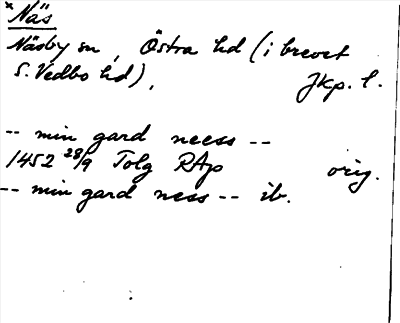 × Näs
Näsby sn, Östra hd (i brevet
S. Vedbo hd), Jkp. l.
-- min gard neess --
1452 28/9 Tolg RAp orig.
-- min gard ness -- ib.